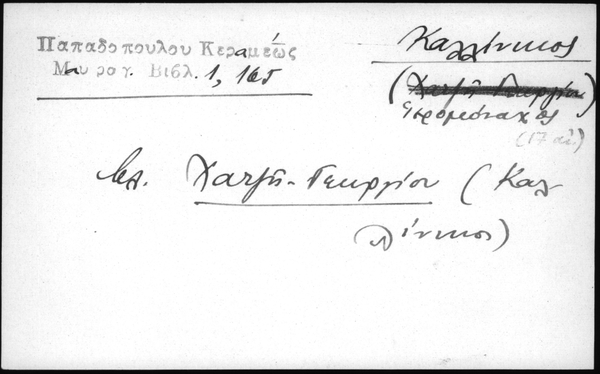 Παπαδοπουλου Κεραμέως
Μαυρογ. Βιβλ. 1, 165
Καλλίνικος
(Χατζῆ Γεωργίου)
Ἱερομόναχος
(17 αἰ.)
βλ. Χατζῆ-Γεωργίου (Καλ-
λίνικος)